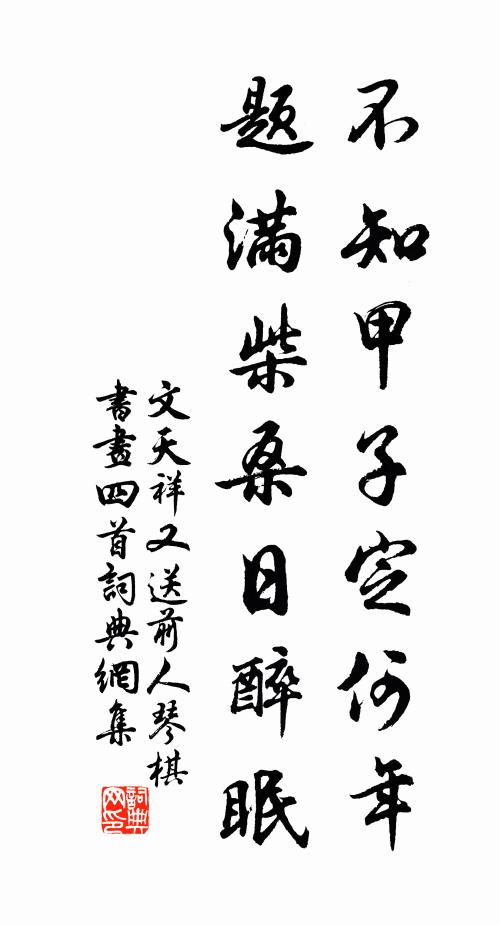 不知甲子定何年
題滿柴桑日醉眠
文天祥又送前人琴棋
書畫四首詞典網集
詞典网印